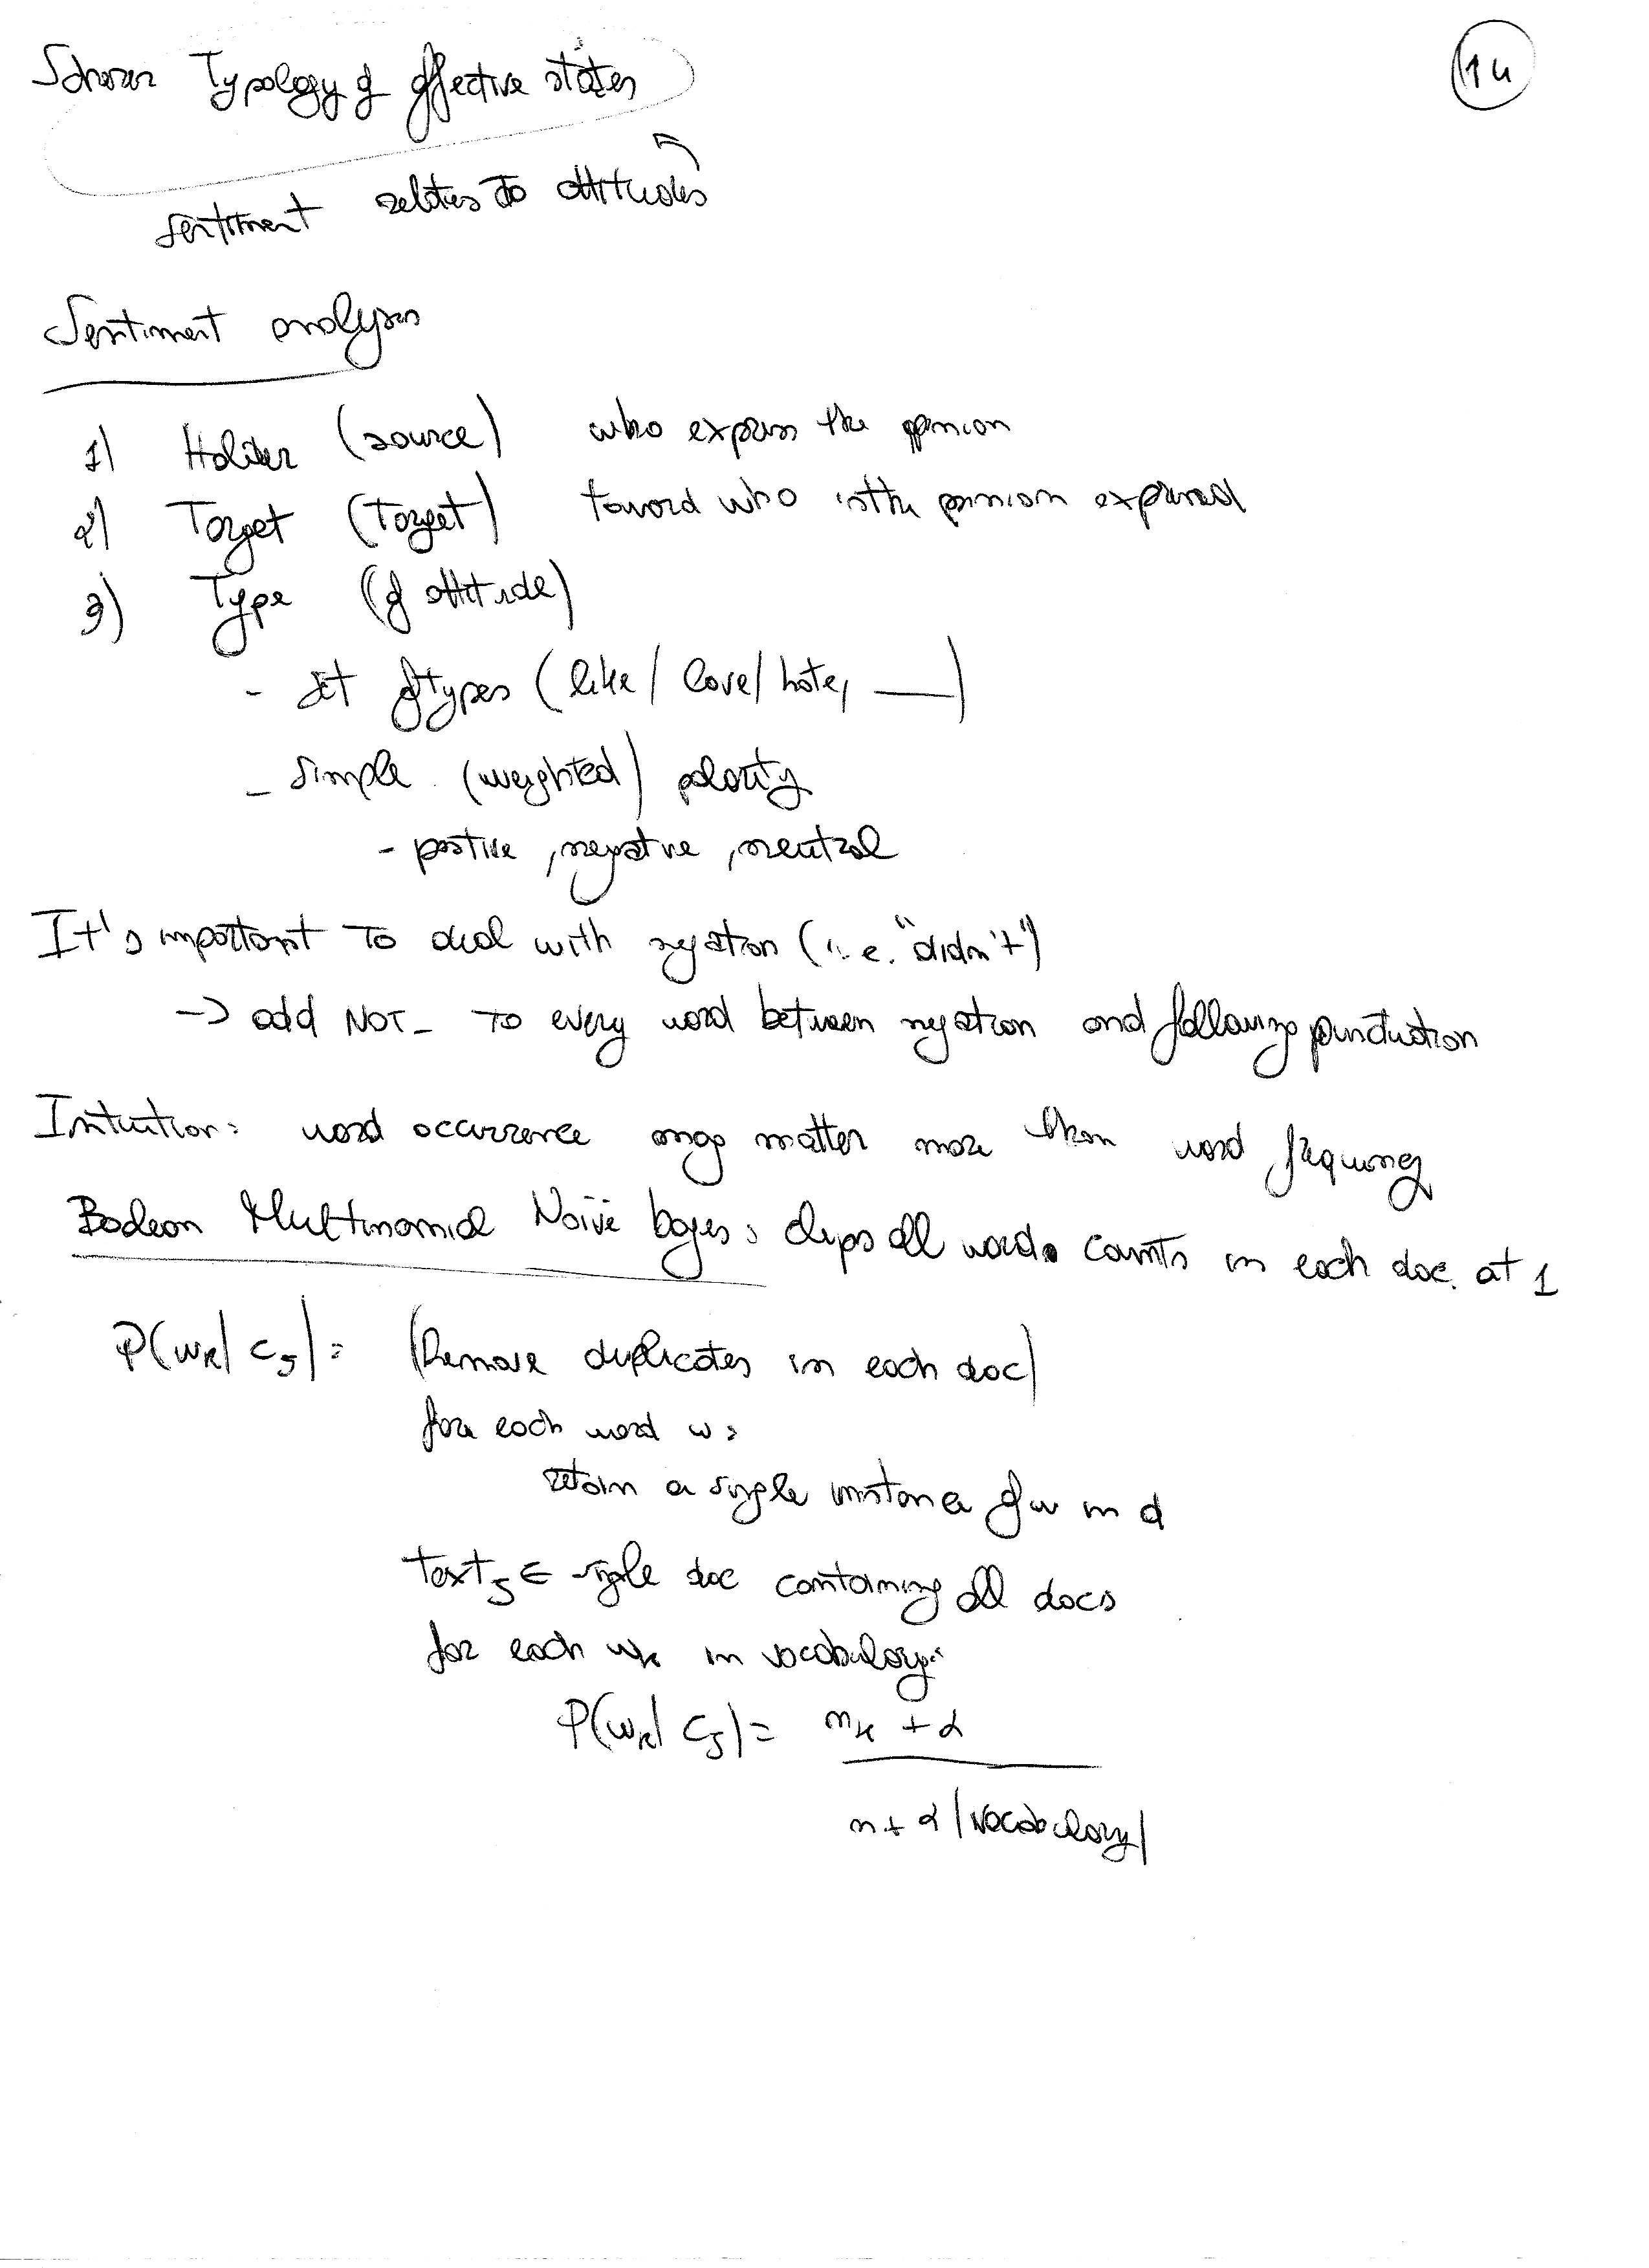 Scherer Typology of affective states
14
sentiment relates to attitudes
Sentiment analysis
1) Holder (source) who express the opinion
2) Target (Target) toward who is the opinion expressed
3) Type (of attitude)
- set of types (like / love / hate, ___)
- simple (weighted) polarity
- positive, negative, neutral
It's important to deal with negation (i.e. "didn't")
-> add NOT_ to every word between negation and following punctuation
Intuition: word occurrence may matter more than word frequency
Boolean Multinomial Naïve bayes: clips all words counts in each doc. at 1
P(wk | cj): (Remove duplicates in each doc)
for each word w:
retain a single instance of w in d
textj ∈ single doc containing all docs
for each wk in vocabulary:
P(wk | cj) = nk + α
n + α |Vocabulary|